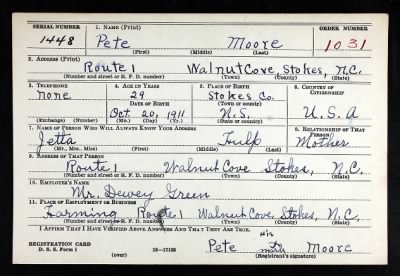 SERIAL NUMBER 1. NAME (Print) ORDER NUMBER
1448 Pete Moore 1031
(First) (Middle) (Last)
2. ADDRESS (Print)
Route 1 Walnut Cove, Stokes, N.C.
(Number and street or R. F. D. number) (Town) (County) (State)
3. TELEPHONE 4. AGE IN YEARS 5. PLACE OF BIRTH 6. COUNTRY OF CITIZENSHIP
none 29 Stokes Co.
DATE OF BIRTH (Town or county)
Oct. 20, 1911 N.S. U.S.A
(Exchange) (Number) (Mo.) (Day) (Yr.) (State or country)
7. NAME OF PERSON WHO WILL ALWAYS KNOW YOUR ADDRESS 8. RELATIONSHIP OF THAT PERSON
Jetta Tulp Mother
(Mr., Mrs., Miss) (First) (Middle) (Last)
9. ADDRESS OF THAT PERSON
Route 1 Walnut Cove Stokes, N.C.
(Number and street or R. F. D. number) (Town) (County) (State)
10. EMPLOYER'S NAME
Mr. Dewey Green
11. PLACE OF EMPLOYMENT OR BUSINESS
Farming Route 1 Walnut Cove, Stokes, N.C.
(Number and street or R. F. D. number) (Town) (County) (State)
I AFFIRM THAT I HAVE VERIFIED ABOVE ANSWERS AND THAT THEY ARE TRUE.
his
REGISTRATION CARD Pete Moore
D. S. S. Form 1 16—17105 mark
(over) (Registrant's signature)